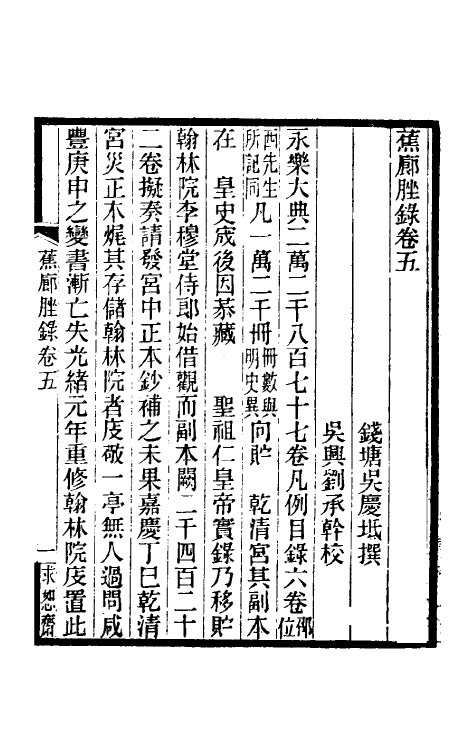 蕉廊脞錄卷五
錢塘吳慶坻撰
吳興劉承幹校
永樂大典二萬二千八百七十七卷凡例目錄六卷邵位
西先生所記同凡一萬二千冊冊數與明史異向貯　乾清宮其副本
在　皇史宬後因恭藏　聖祖仁皇帝實錄乃移貯
翰林院李穆堂侍郎始借觀而副本闕二千四百二十
二卷擬奏請發宮中正本鈔補之未果嘉慶丁巳乾清
宮災正本燬其存儲翰林院者庋敬一亭無人過問咸
豐庚申之變書漸亡失光緒元年重修翰林院庋置此
蕉廊脞錄卷五
一
求恕齋